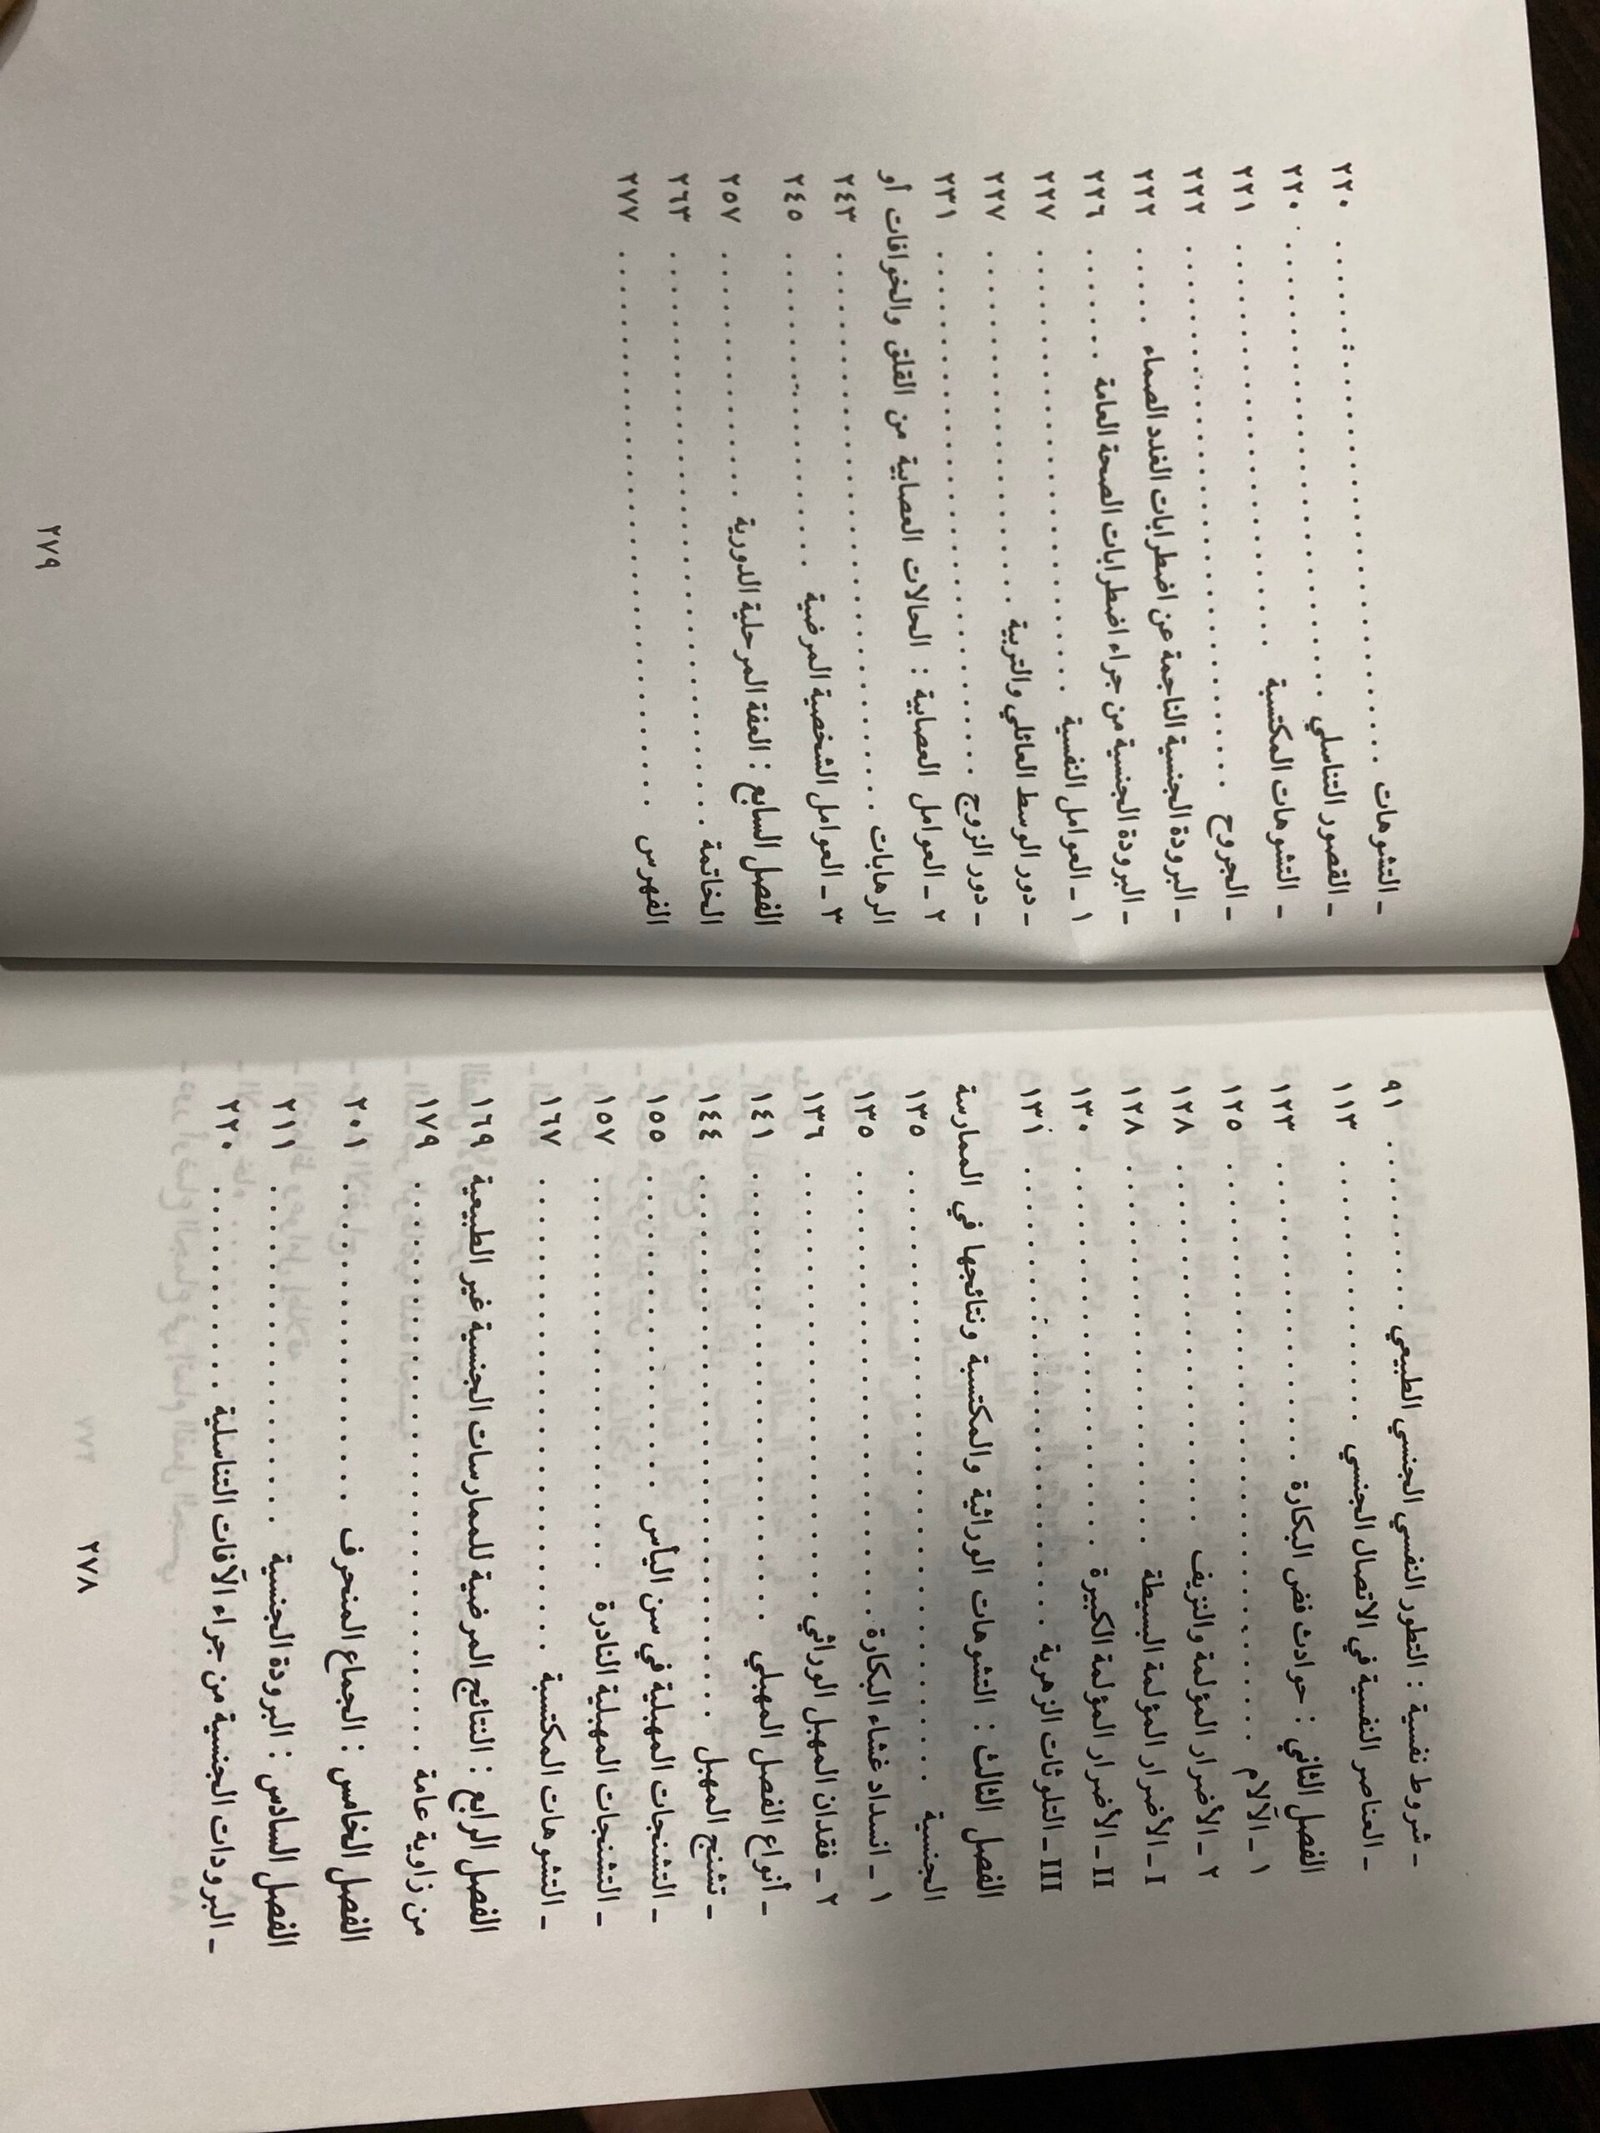 - شروط نفسية : التطور النفسي الجنسي الطبيعي . . . . . . . . . . ٩١
- العناصر النفسية في الاتصال الجنسي . . . . . . . . . . . . . . ١١٣
الفصل الثاني : حوادث فض البكارة . . . . . . . . . . . . . . . . ١٢٣
١ - الآلام . . . . . . . . . . . . . . . . . . . . . . . . . . ١٢٥
٢ - الأضرار المؤلمة والنزيف . . . . . . . . . . . . . . . . . . ١٢٨
I - الأضرار المؤلمة البسيطة . . . . . . . . . . . . . . . . . . ١٢٨
II - الأضرار المؤلمة الكبيرة . . . . . . . . . . . . . . . . . . ١٣٠
III - التلوثات الزهرية . . . . . . . . . . . . . . . . . . . . ١٣١
الفصل الثالث : التشوهات الوراثية والمكتسبة ونتائجها في الممارسة
الجنسية . . . . . . . . . . . . . . . . . . . . . . . . . . . ١٣٥
١ - انسداد غشاء البكارة . . . . . . . . . . . . . . . . . . . . ١٣٥
٢ - فقدان المهبل الوراثي . . . . . . . . . . . . . . . . . . . ١٣٦
- أنواع الفصل المهبلي . . . . . . . . . . . . . . . . . . . . ١٤١
- تشنج المهبل . . . . . . . . . . . . . . . . . . . . . . . . ١٤٤
- التشنجات المهبلية في سن اليأس . . . . . . . . . . . . . . . . ١٥٥
- التشنجات المهبلية النادرة . . . . . . . . . . . . . . . . . . ١٥٧
- التشوهات المكتسبة . . . . . . . . . . . . . . . . . . . . . ١٦٧
الفصل الرابع : النتائج المرضية للممارسات الجنسية غير الطبيعية ١٦٩
من زاوية عامة . . . . . . . . . . . . . . . . . . . . . . . . ١٧٩
الفصل الخامس : الجماع المنحرف . . . . . . . . . . . . . . . . ٢٠١
الفصل السادس : البرودة الجنسية . . . . . . . . . . . . . . . . ٢١١
- البرودات الجنسية من جراء الآفات التناسلية . . . . . . . . . . ٢٢٠
٢٧٨
- التشوهات . . . . . . . . . . . . . . . . . . . . . . . . . ٢٢٠
- القصور التناسلي . . . . . . . . . . . . . . . . . . . . . . ٢٢٠
- التشوهات المكتسبة . . . . . . . . . . . . . . . . . . . . . ٢٢١
- الجروح . . . . . . . . . . . . . . . . . . . . . . . . . . ٢٢٢
- البرودة الجنسية الناجمة عن اضطرابات الغدد الصماء . . . . . ٢٢٢
- البرودة الجنسية من جراء اضطرابات الصحة العامة . . . . . . . ٢٢٦
١ - العوامل النفسية . . . . . . . . . . . . . . . . . . . . . . ٢٢٧
- دور الوسط العائلي والتربية . . . . . . . . . . . . . . . . . ٢٢٧
- دور الزوج . . . . . . . . . . . . . . . . . . . . . . . . . ٢٣١
٢ - العوامل العصابية : الحالات العصابية من القلق والخوافات أو
الرهابات . . . . . . . . . . . . . . . . . . . . . . . . . . ٢٤٣
٣ - العوامل الشخصية المرضية . . . . . . . . . . . . . . . . . ٢٤٥
الفصل السابع : العفة المرحلية الدورية . . . . . . . . . . . . . ٢٥٧
الخاتمة . . . . . . . . . . . . . . . . . . . . . . . . . . . ٢٦٣
الفهرس . . . . . . . . . . . . . . . . . . . . . . . . . . . ٢٧٧
٢٧٩